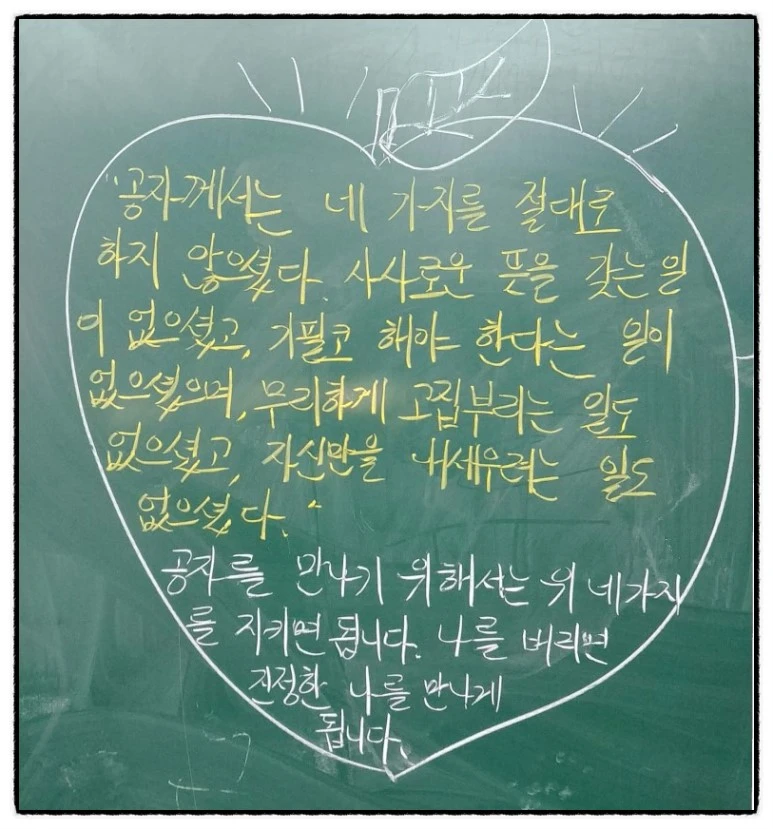 "공자께서는 네 가지를 절대로
하지 않으셨다. 사사로운 뜻을 갖는 일
이 없으셨고, 기필코 해야 한다는 일이
없으셨으며, 무리하게 고집부리는 일도
없으셨고, 자신만을 내세우려는 일도
없으셨다."
공자를 만나기 위해서는 위 네가지
를 지키면 됩니다. 나를 버리면
진정한 나를 만나게
됩니다.